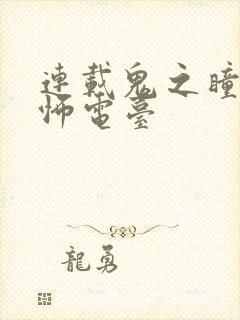 連載鬼之瞳
怖電臺
龍勇